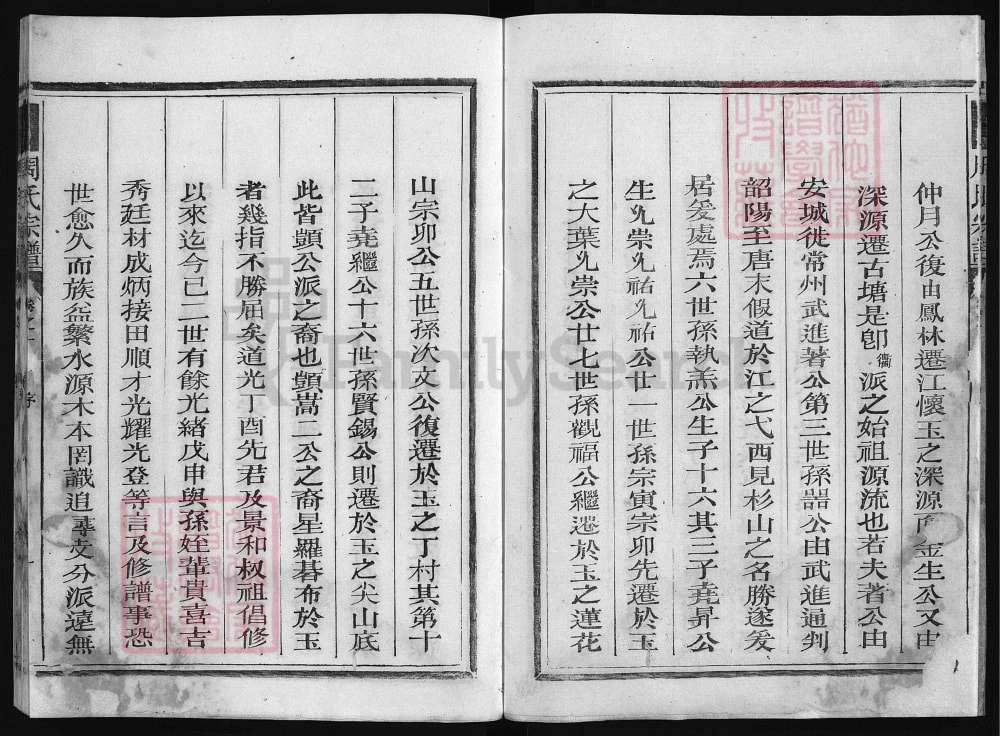 周氏宗譜
仲月公復由鳳林遷江懷玉之深源 金生公又由
深源遷古塘是卽衢派之始祖源流也若夫著公由
安城徙常州武進著公第三世孫嚞公由武進通判
韶陽至唐末假道於江之弋西見杉山之名勝遂爰
居爰處焉六世孫執羔公生子十六其三子堯昇公
生允崇允祐允祐公廿一世孫宗寅宗卯先遷於玉
之大葉允崇公廿七世孫觀福公繼遷於玉之蓮花
山宗卯公五世孫次文公復遷於玉之丁村其第十
二子堯繼公十六世孫賢錫公則遷於玉之尖山底
此皆顗公派之裔也顗嵩二公之裔星羅碁布於玉
者幾指不勝屈矣道光丁酉先君及景和叔祖倡修
以來迄今已二世有餘光緒戊申與孫姪輩貴喜吉
秀廷材成炳接田順才光耀光登等言及修譜事恐
世愈久而族益繁水源木本罔識追尋支分派遠無
周氏宗譜
卷之一
序
FamilySearch